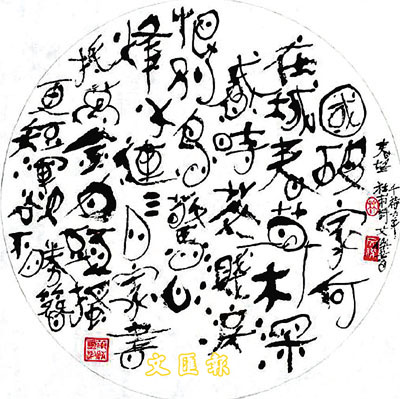 國破家何
在城春草木深
感時花濺淚
恨別鳥驚心
烽火連三月家書
抵萬金白頭搔
更短渾欲不勝簪
春望
杜甫詩
文匯報